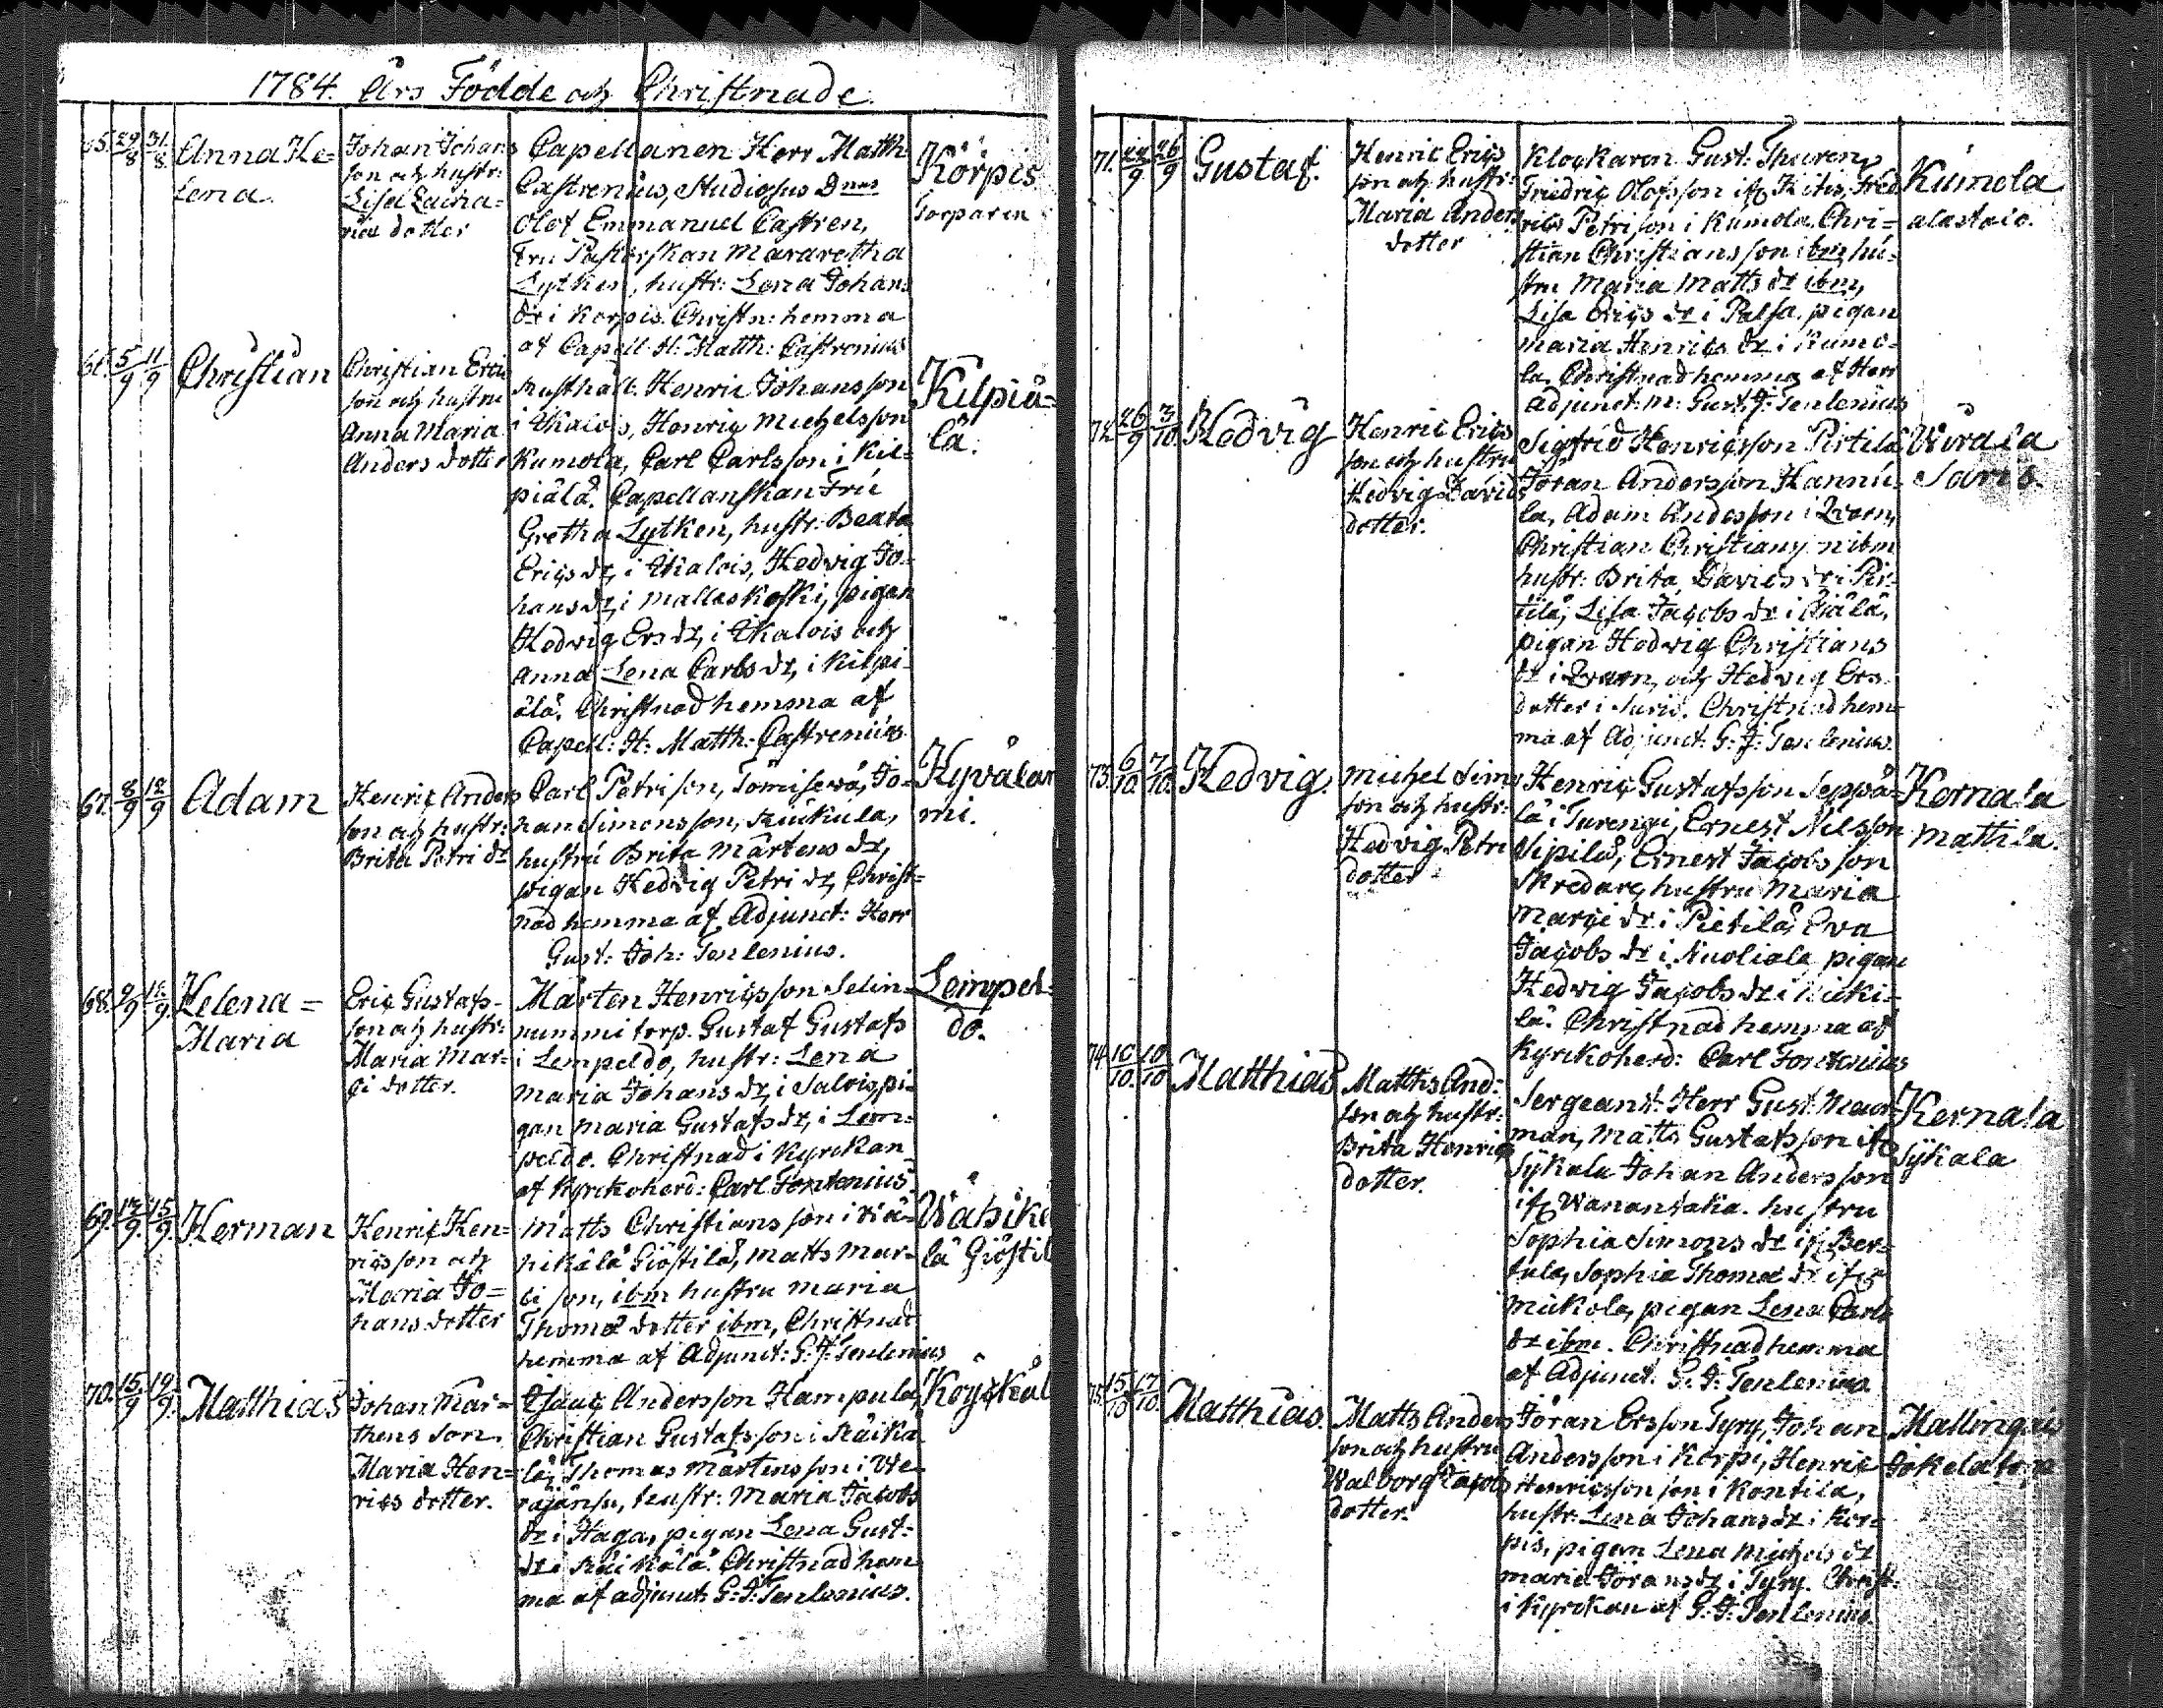 1784. Års Födde och Christnade.
65. 29/8 31/8 Anna He=
lena.
Johan Johans
son och hustr:
Lisa Zacha=
riæ dotter
Capellanen Herr Matth:
Castrenius, Studiosus Dnus
Olof Emmanuel Castren,
Fru Pastorskan Mararetha
Lytken, hustr: Lena Johans
dr i Korpis. Christn: hemma
af Capell: H: Matth: Castrenius
Körpis
torparen
66. 5/9 11/9 Christian
Christian Erics
son och hustru
Anna Maria
Anders dotter
Rusthåll. Henric Johansson
i Ikalois, Henric Michelsson
Kumola, Carl Carlsson i Kil=
piälä. Capellanskan Fru
Gretha Lytken, hustr: Beata
Erics dr, i Ikalois, Hedvig Jo=
hans dr, i Mallaskoski, pigan
Hedvig Ers dr, i Ikalois och
Anna Lena Carls dr, i Kilpi=
älä. Christnad hemma af
Capell: H: Matth: Castrenius.
Kilpiä=
lä.
67. 8/9 12/9 Adam
Henric Anders
son och hustr:
Brita Petri dr
Carl Petrison, Tömisewä, Jo=
han Simonsson, Kiukula,
hustru Brita Mårtens dr,
pigan Hedvig Petri dr, Christ=
nad hemma af Adjunct: Herr
Gust: Joh: Tenlenius.
Hyvälam
mi.
68. 9/9 12/9 Helena =
Maria
Eric Gustafs-
son och hustr:
Maria Mar=
ci dotter.
Mårten Henricsson Selin=
nummi torp. Gustaf Gustafs
i Lempeldo, hustr: Lena
Maria Johans dr, i Salois, pi=
gan Maria Gustafs dr, i Lem=
peldo. Christnad i Kyrckan
af Kyrckoherd: Carl Fontenius.
Lempel=
do.
69. 12/9. 15/9. Herman
Henric Hen=
ricsson och
Maria Jo=
hans dotter
Matts Christiansson i Wä=
hikälä Giöstilä, Matts Mar=
ci son, ibm hustru Maria
Thomæ dotter ibm, Christnad
hemma af Adjunct: G: J: Tenlenius
Wähikä
lä Giöstil
70. 15/9 19/9. Matthias
Johan Mår=
thens son.
Maria Hen=
rics dotter.
Isaac Andersson Hampula,
Christian Gustafsson i Räika
lä, Thomas Mårtensson i We=
rajänsu, hustr: Maria Jacobs
dr i Haga, pigan Lena Gust=
dr i Räikälä. Christnad hem
ma af adjunct: G: J: Tenlenius.
Köyskäl
71. 22/9 26/9 Gustaf.
Henric Erics
son och hustr:
Maria Anders
dotter
Klockaren Gust: Thuren,
Friedric Olofsson ifr Hitis, Fred
rics Petrison i Kumola. Chri=
stian Christiansson ibm, hu=
stru Maria Matts dr ibm,
Lisa Erics dr i Palsa. pigan
Maria Henrics dr i Kumo=
la. Christnad hemma af Herr
Adjunct: M: Gust: J: Tenlenius
Kumola
alastalo.
72. 26/9 3/10. Hedvig
Henric Erics
son och hustru
Hedvig Davids
dotter.
Sigfrid Henricsson Pirtilä
Jöran Andersson Hannu=
la, Adam Andersson i Qvarn,
Christian Christians n ibm
hustr: Brita Davids dr i Pir=
tilä, Lisa Jacobs dr i Äiälä,
pigan Hedvig Christians
dr i Qvarn, och Hedvig Ers
dotter i Saris. Christnad hem=
ma af Adjunct. G: J: Tenlenius.
Wirala
Saris.
73. 6/10. 7/10. Hedvig.
Michel Sims
son och hustr:
Hedvig Petri
dotter
Henric Gustafsson Seppä=
lä i Turengi, Ernest Nilsson
Sipilä, Ernest Jacobsson
Skredare, hustru Maria
Marci dr i Pietilä, Eva
Jacobs dr i Nuoliala pigan
Hedvig Jacobs dr i Kuki=
lä. Christnad hemma af
Kyrckoherd: Carl Fontenius
Kernala
Mattila.
74. 10/10. 10/10 Matthias
Matths And:
son och hustr:
Brita Henrics
dotter.
Sergeant: Herr Gust: Maur=
man, Matts Gustafsson ifr
Sykala Johan Andersson
ifr Wanantaka. hustru
Sophia Simons dr ifr Ber=
tula, Sophia Thomæ dr ifr
Mickola, pigan Lena Carls
dr ibm. Christnad hemma
af Adjunct: G: J: Tenlenius.
Kernala
Sykala
75. 15/10 17/10. Matthias.
Matts Anders
son och hustru
Walborg Jacobs
dotter.
Jöran Ersson Tyry, Johan
Andersson i Korpi, Henric
Henricsson son i Kontila,
hustr: Lena Johans dr i Kor=
pis, pigan Lena Michels dr
Maria Jörans dr i Tyry. Christ:
i Kyrckan af G: J: Tenlenius.
Mallingais
Jokela torp